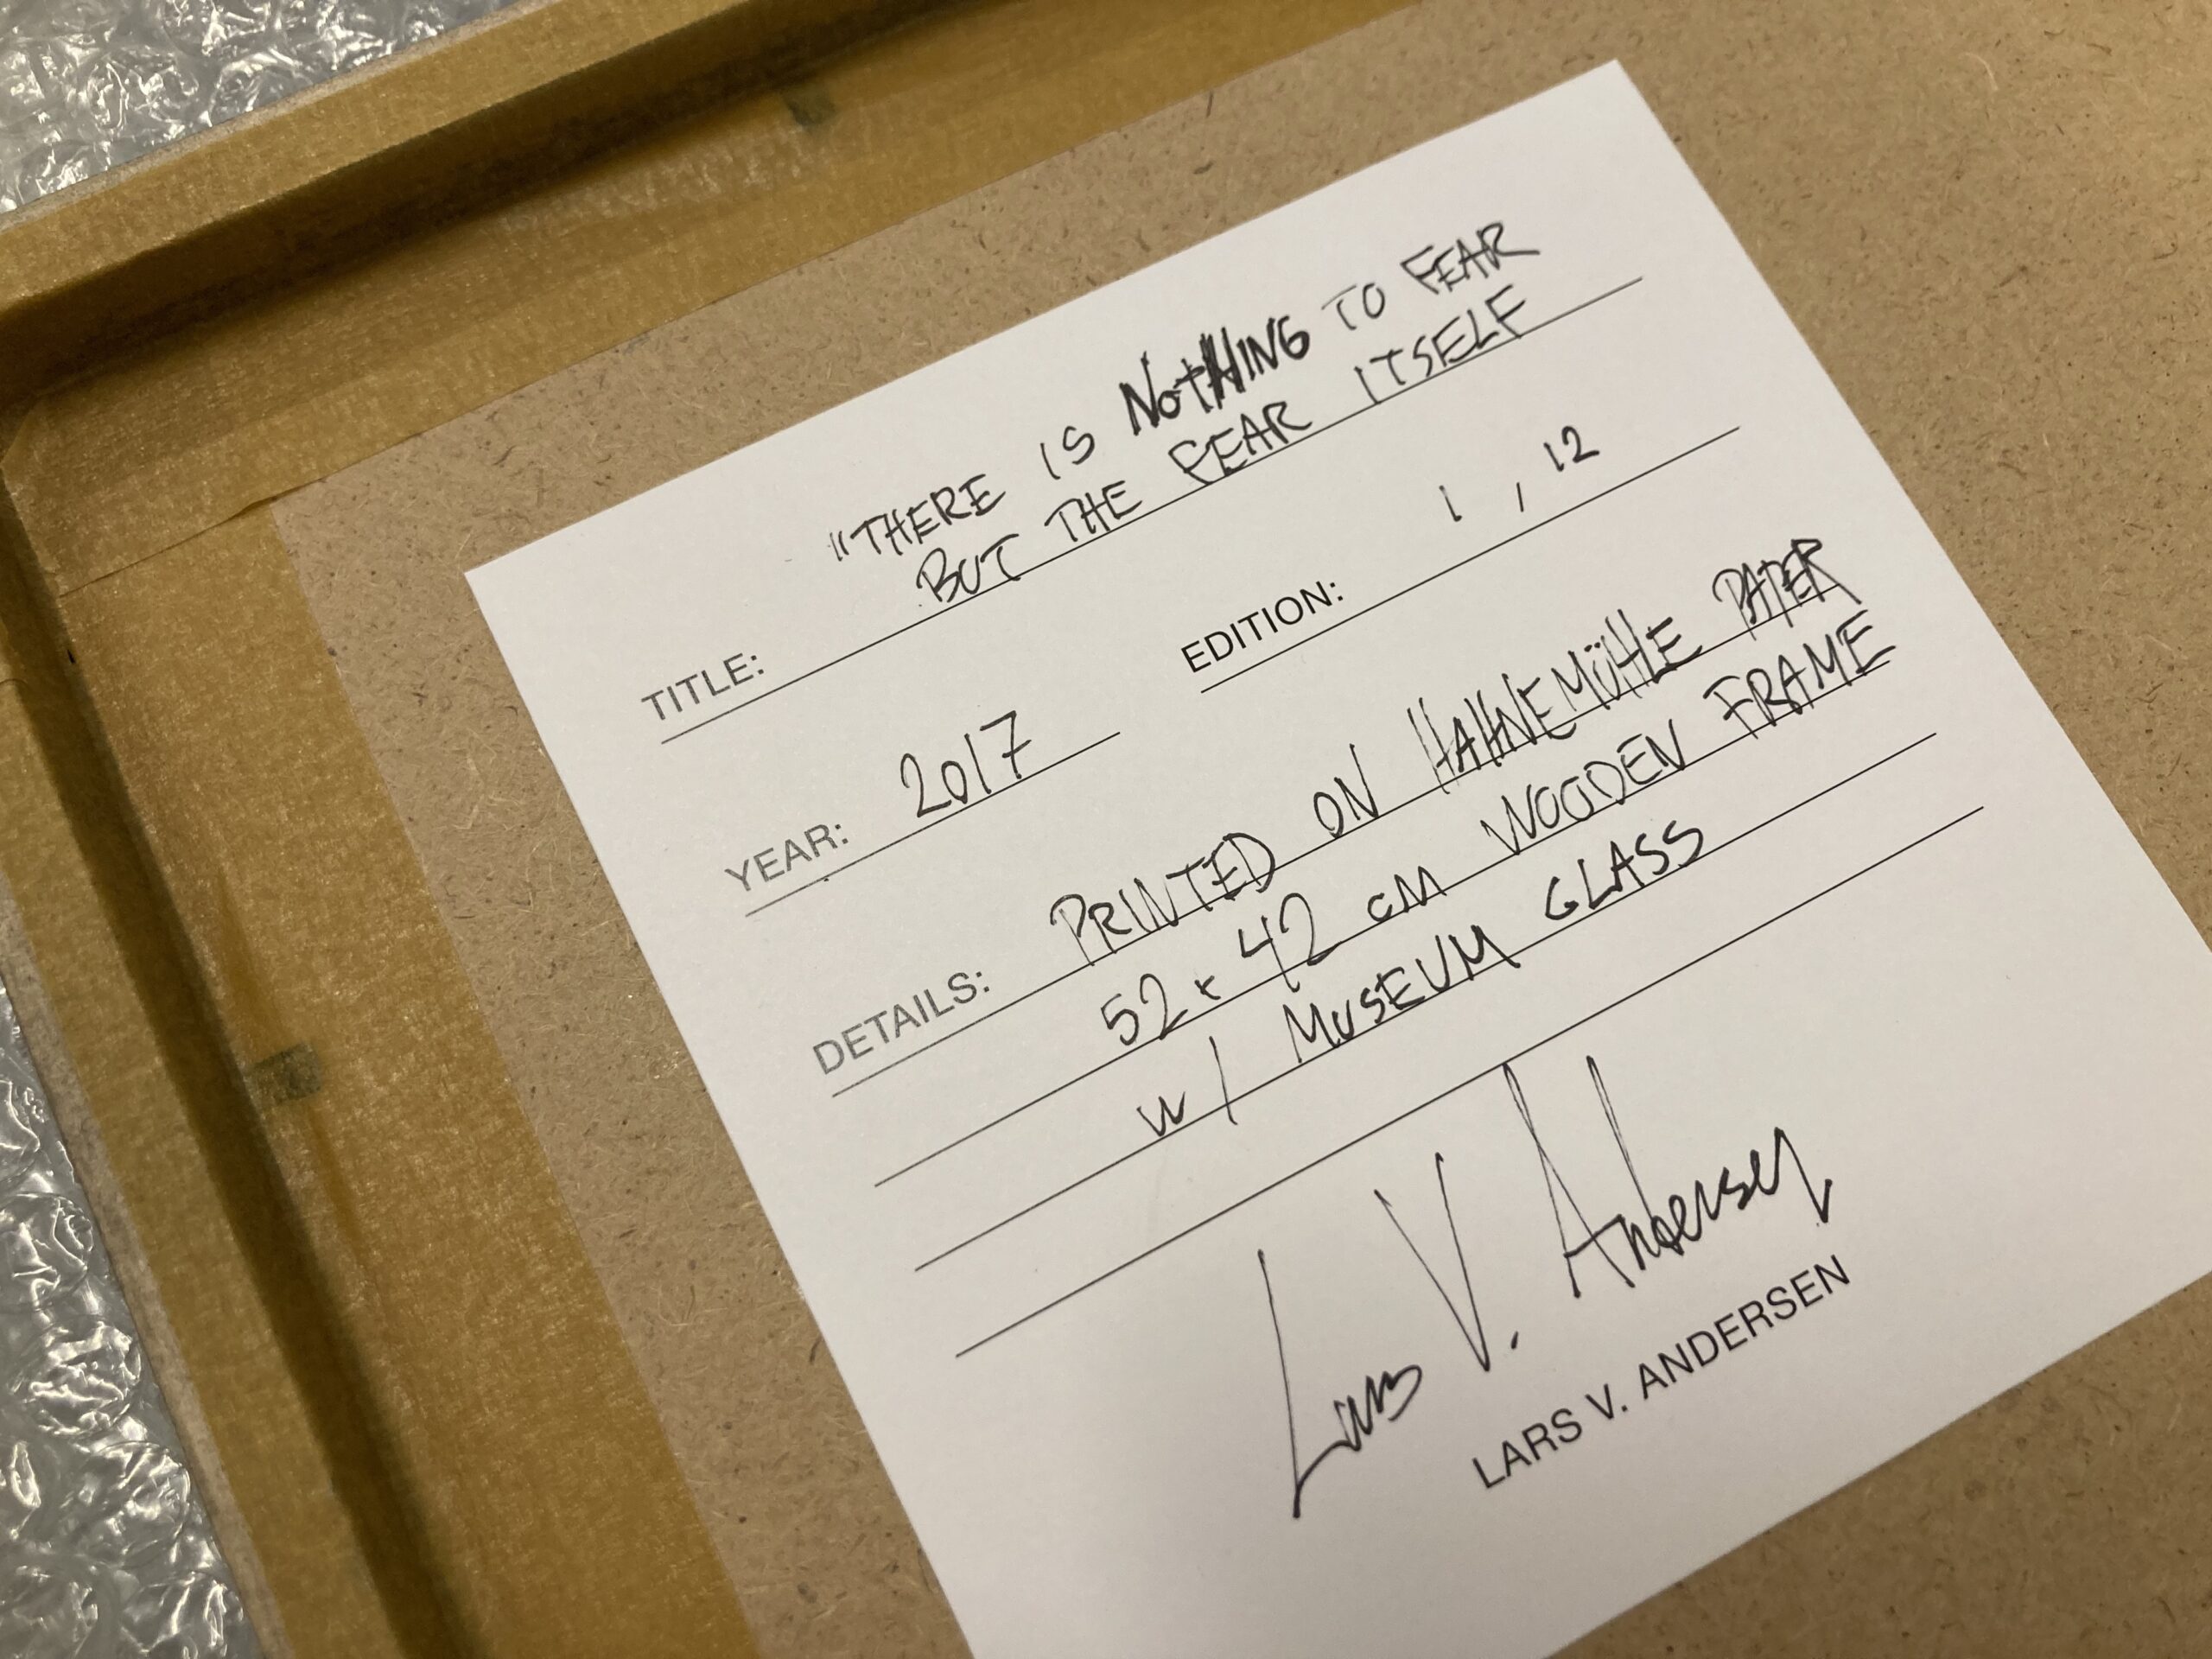 "THERE IS NOTHING TO FEAR
TITLE: BUT THE FEAR ITSELF
YEAR: 2017 EDITION: 1 / 12
DETAILS: PRINTED ON HAHNEMÜHLE PAPER
52 x 42 cm WOODEN FRAME
w/ MUSEUM GLASS
Lars V. Andersen
LARS V. ANDERSEN